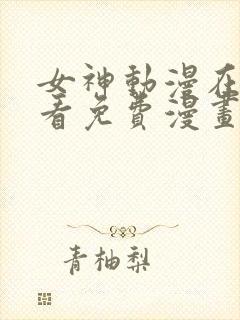 女神動漫在
看免費漫畫
青柚梨